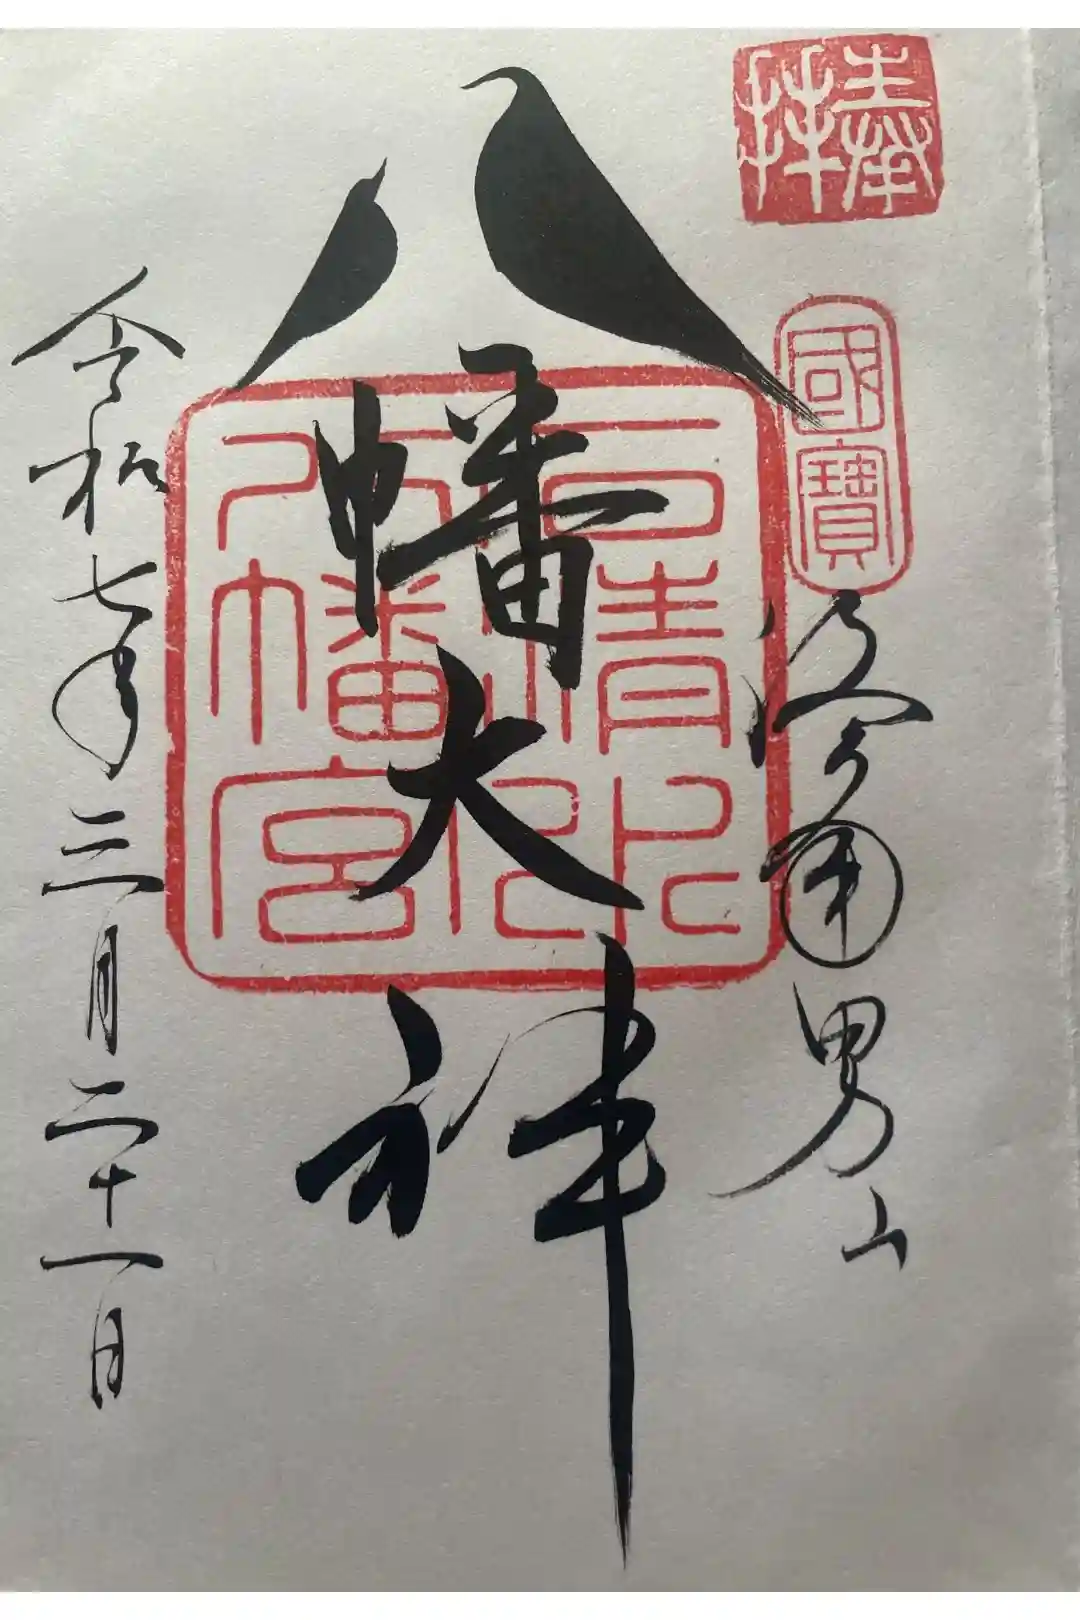 奉拝
國寶
洛南男山
八幡大神
石清水八幡宮
令和七年三月二十一日